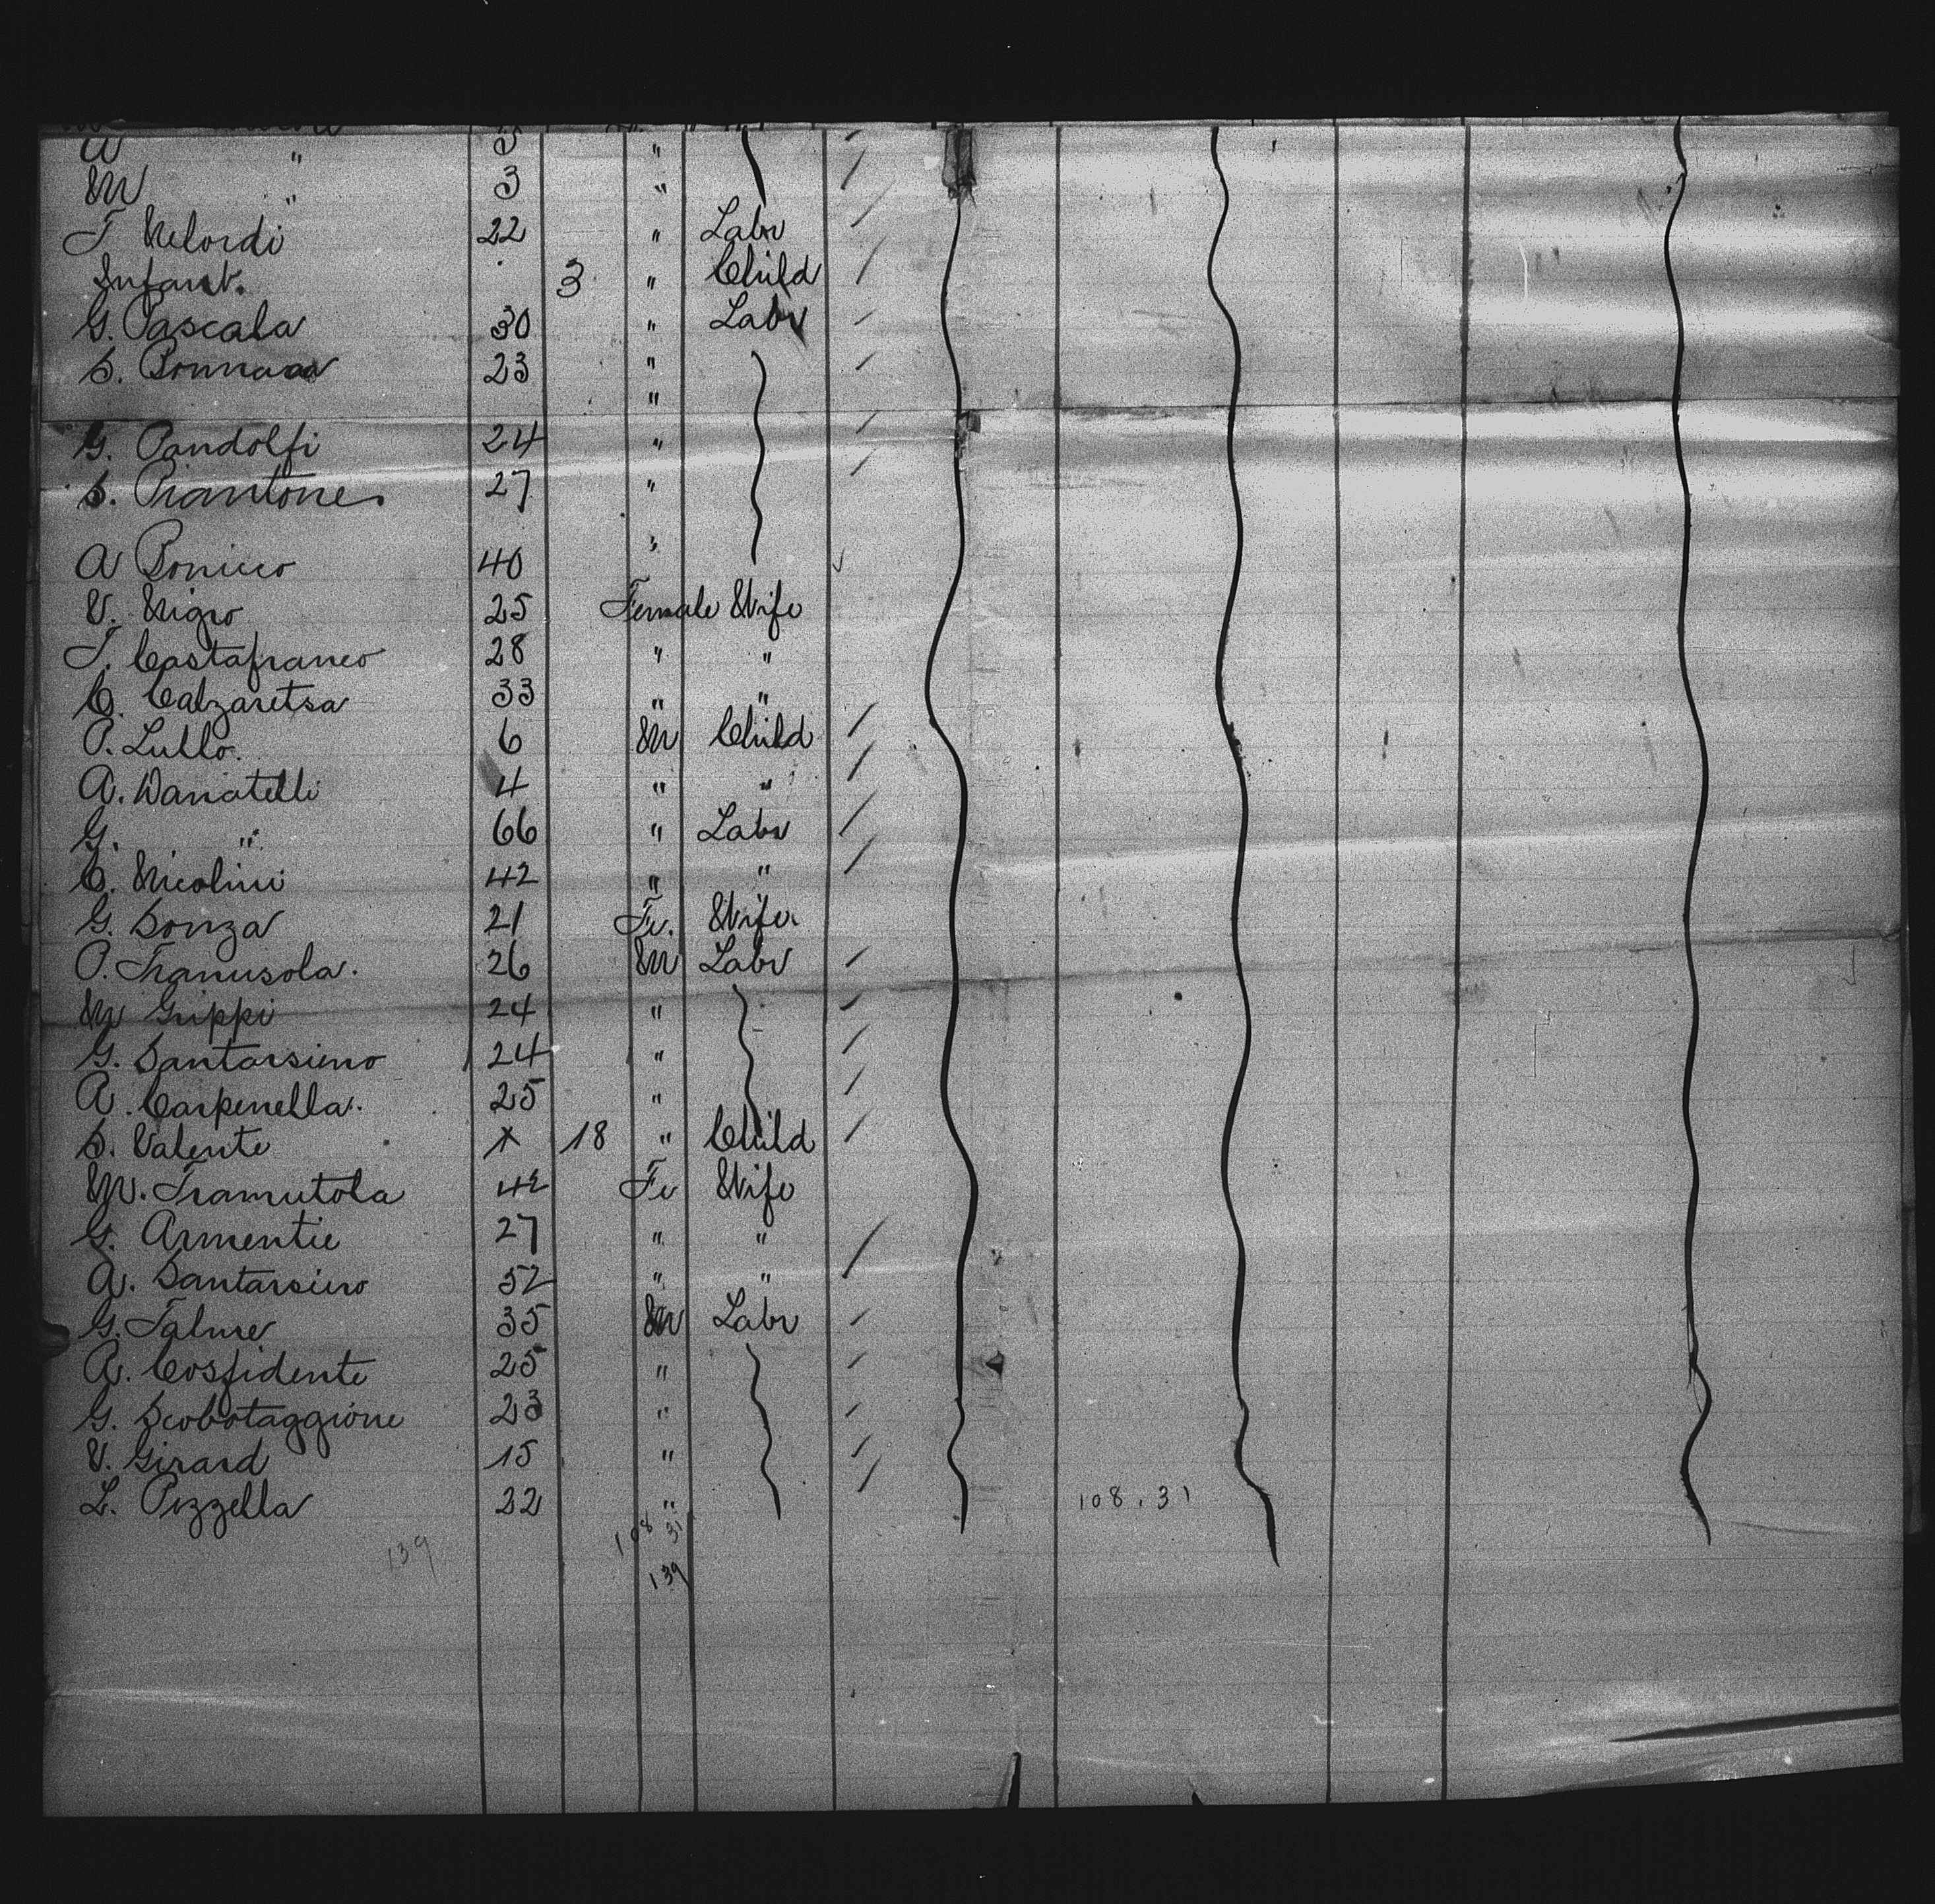 A " 5 "
M " 3 "
T Nelordi 22 " Labr
Infant. 3 " Child
G. Pascala 30 " Labr
S. 23 "
"
G. Pandolfi 24 "
S. Piantone. 27 "
A Bonicco 40 "
V. Nigro 25 Female Wife
T. Castafranco 28 " "
C. Calzaretsa 33 " "
P. Lullo. 6 M Child
A. Danatelli 4 " "
G. " 66 " Labr
C. Nicolini 42 " "
G. Sonza 21 Fe. Wife
P. Tranusola. 26 M Labr
M Grippi 24 "
G. Santarsieno 24 "
A. Carpenella. 25 "
S. Valente x 18 " Child
M. Tramutola 42 Fe Wife
G. Armentie 27 " "
A. Santarsiero 52 " "
G. Talme 35 M Labr
A. Cosfidente 25 "
G. Scobotaggione 23 "
V. Girard 15 "
L. Pozzella 22 "
108.31
108
31
139
139